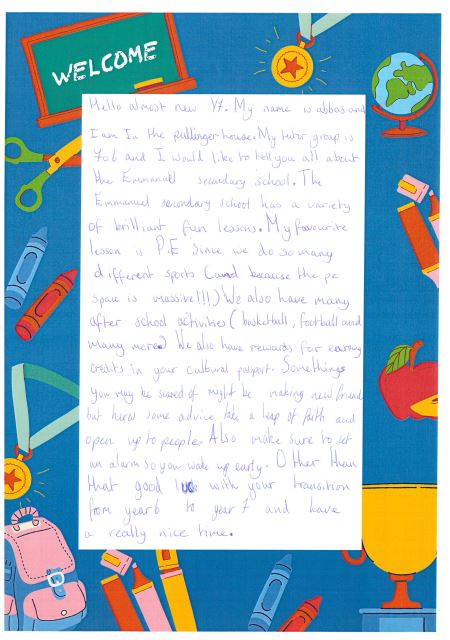 WELCOME
Hello almost new Y7. My name is abbas and
I am In the pullinger house. My tutor group is
7o6 and I would like to tell you all about
the Emmanuel secondary school. The
Emmanuel secondary school has a variety
of brilliant fun lessons. My favourite
lesson is P.E Since we do so many
different sports (and because the pe
space is massive!!!) We also have many
after school activities (basketball, football and
many more) We also have rewards for earning
credits in your cultural pasport. Somethings
you may be scared of might be making new friends
but heres some advice take a leap of faith and
open up to people. Also make sure to set
an alarm so you wake up early. Other than
that good luc with your transition
from year 6 to year 7 and have
a really nice time.